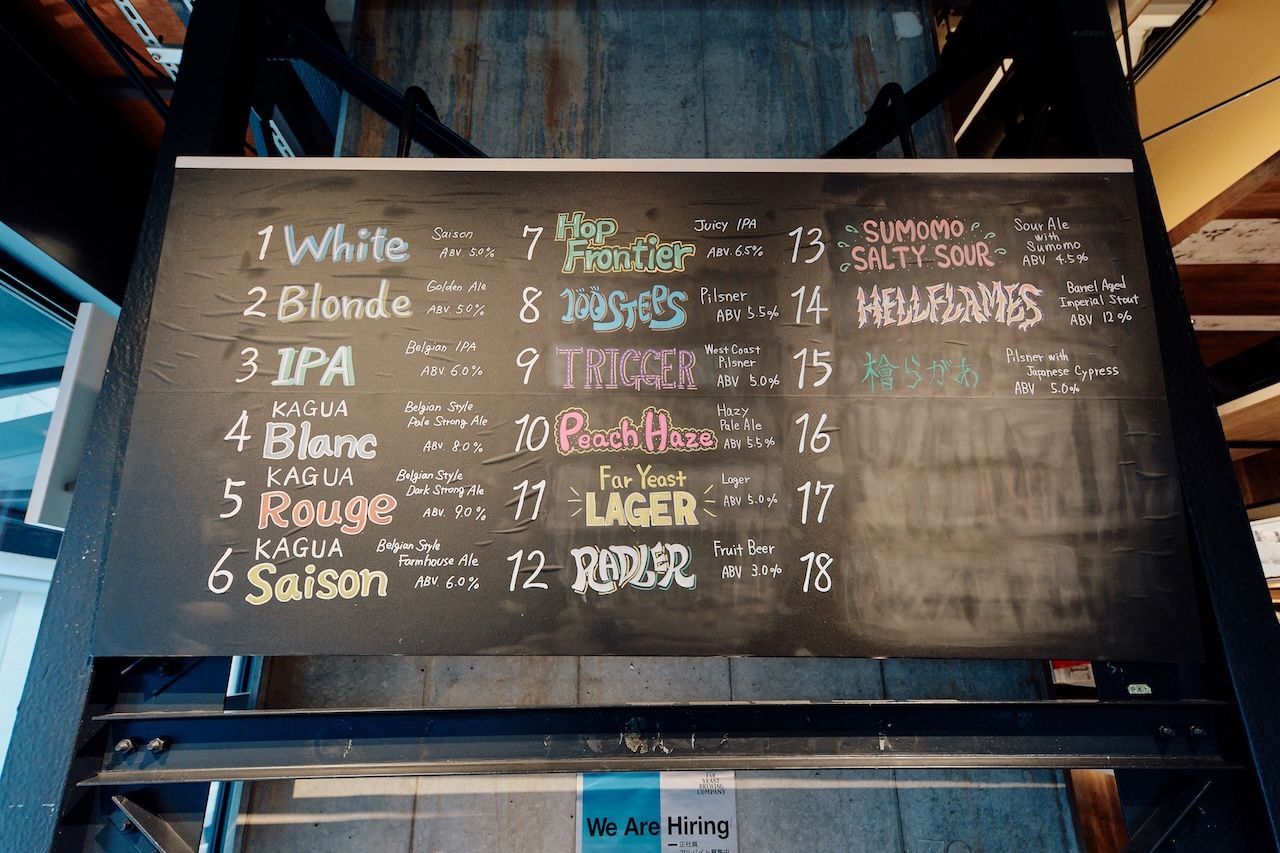 1 White Saison
ABV 5.0%
2 Blonde Golden Ale
ABV 5.0%
3 IPA Belgian IPA
ABV. 6.0%
4 KAGUA
Blanc
Belgian Style
Pale Strong Ale
ABV. 8.0%
5 KAGUA
Rouge
Belgian Style
Dark Strong Ale
ABV. 9.0%
6 KAGUA
Saison
Belgian Style
Farmhouse Ale
ABV. 6.0%
7 Hop
Frontier
Juicy IPA
ABV. 6.5%
8 100STEPS Pilsner
ABV 5.5%
9 TRIGGER
West Coast
Pilsner
ABV 5.0%
10 Peach Haze
Hazy
Pale Ale
ABV 5.5%
11 Far Yeast
LAGER
Lager
ABV 5.0%
12 RADLER Fruit Beer
ABV 3.0%
13 SUMOMO
SALTY SOUR
Sour Ale
with
Sumomo
ABV 4.5%
14 HELLFLAMES
Barrel Aged
Imperial Stout
ABV 12%
15 檜らがあ
Pilsner with
Japanese Cypress
ABV 5.0%
16
17
18
FAR
YEAST
BREWING
COMPANY
We Are Hiring
正社員
アルバイト募集中